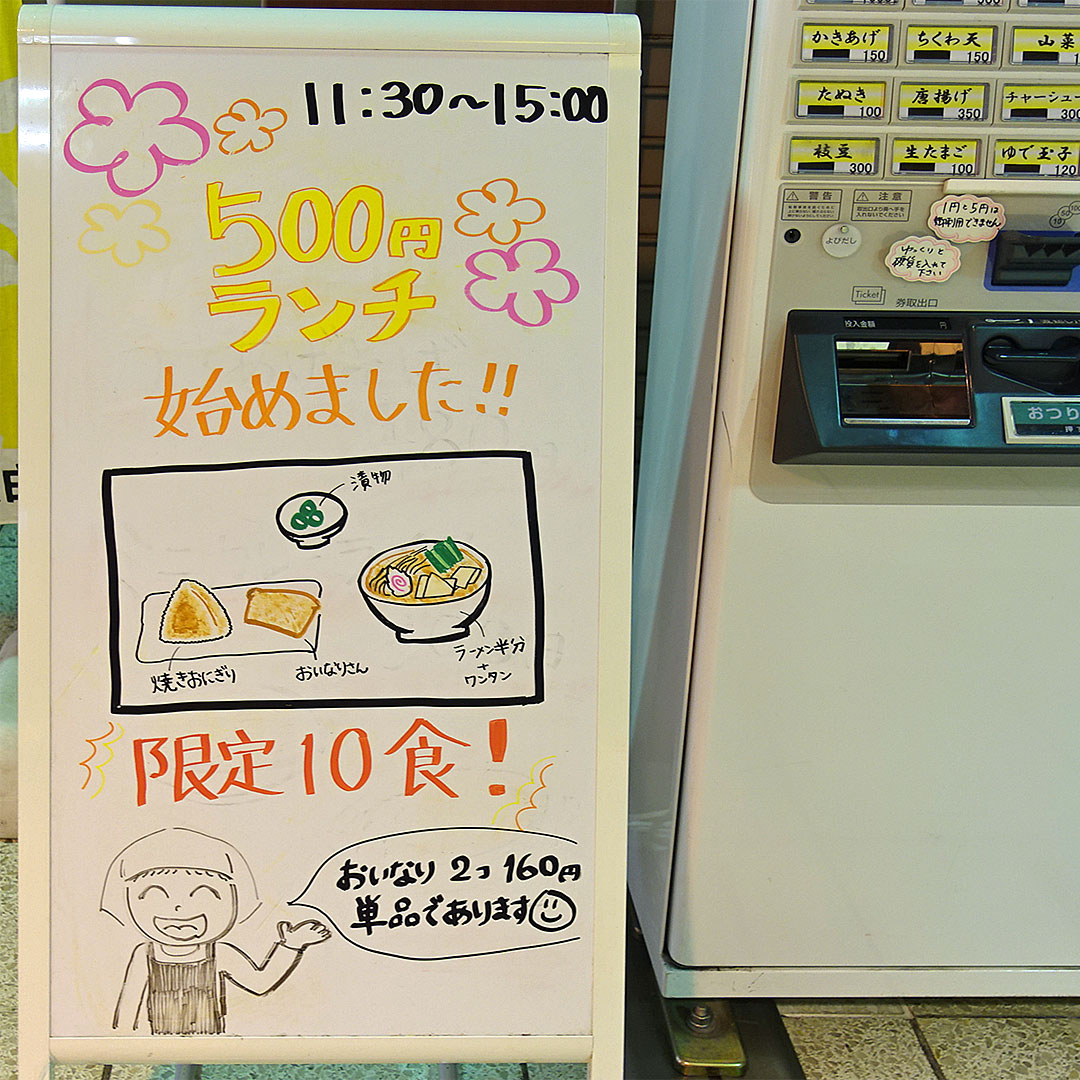 11:30~15:00
500円
ランチ
始めました!!
漬物
焼きおにぎり
おいなりさん
ラーメン半分
+
ワンタン
限定10食!
おいなり 2コ 160円
単品であります
かきあげ 150
ちくわ天 100
山菜
たぬき 100
唐揚げ 350
チャーシュー 300
枝豆 300
生たまご 100
ゆで玉子 120
警告
注意
取出口より奥へ手を
入れないでください
よびだし
1円と5円は
御利用できません
ゆっくりと
硬貨を入れて
下さい
Ticket
券取出口
投入金額 円
おつり